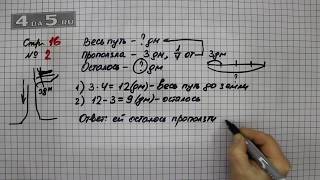 4 DA 5.RU
Стр. 16
№ 2
Весь путь - ? дм
Проползла - 3 дм, 1/4 от
Осталось - ? дм
3 дм
3дм
?
1) 3 · 4 = 12 (дм) - весь путь до земли
2) 12 - 3 = 9 (дм) - осталось
Ответ: ей осталось проползти